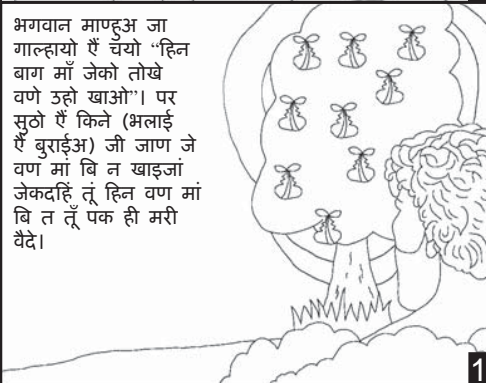 भगवान माण्हुअ जा
गाल्हायो ऐं चयो “हिन
बाग माँ जेको तोखे
वणे उहो खाओ”। पर
सुठो ऐं किने (भलाई
ऐं बुराईअ) जी जाण जे
वण मां बि न खाइजां
जेकदहिं तूं हिन वण मां
बि त तूँ पक ही मरी
वैदे।
1